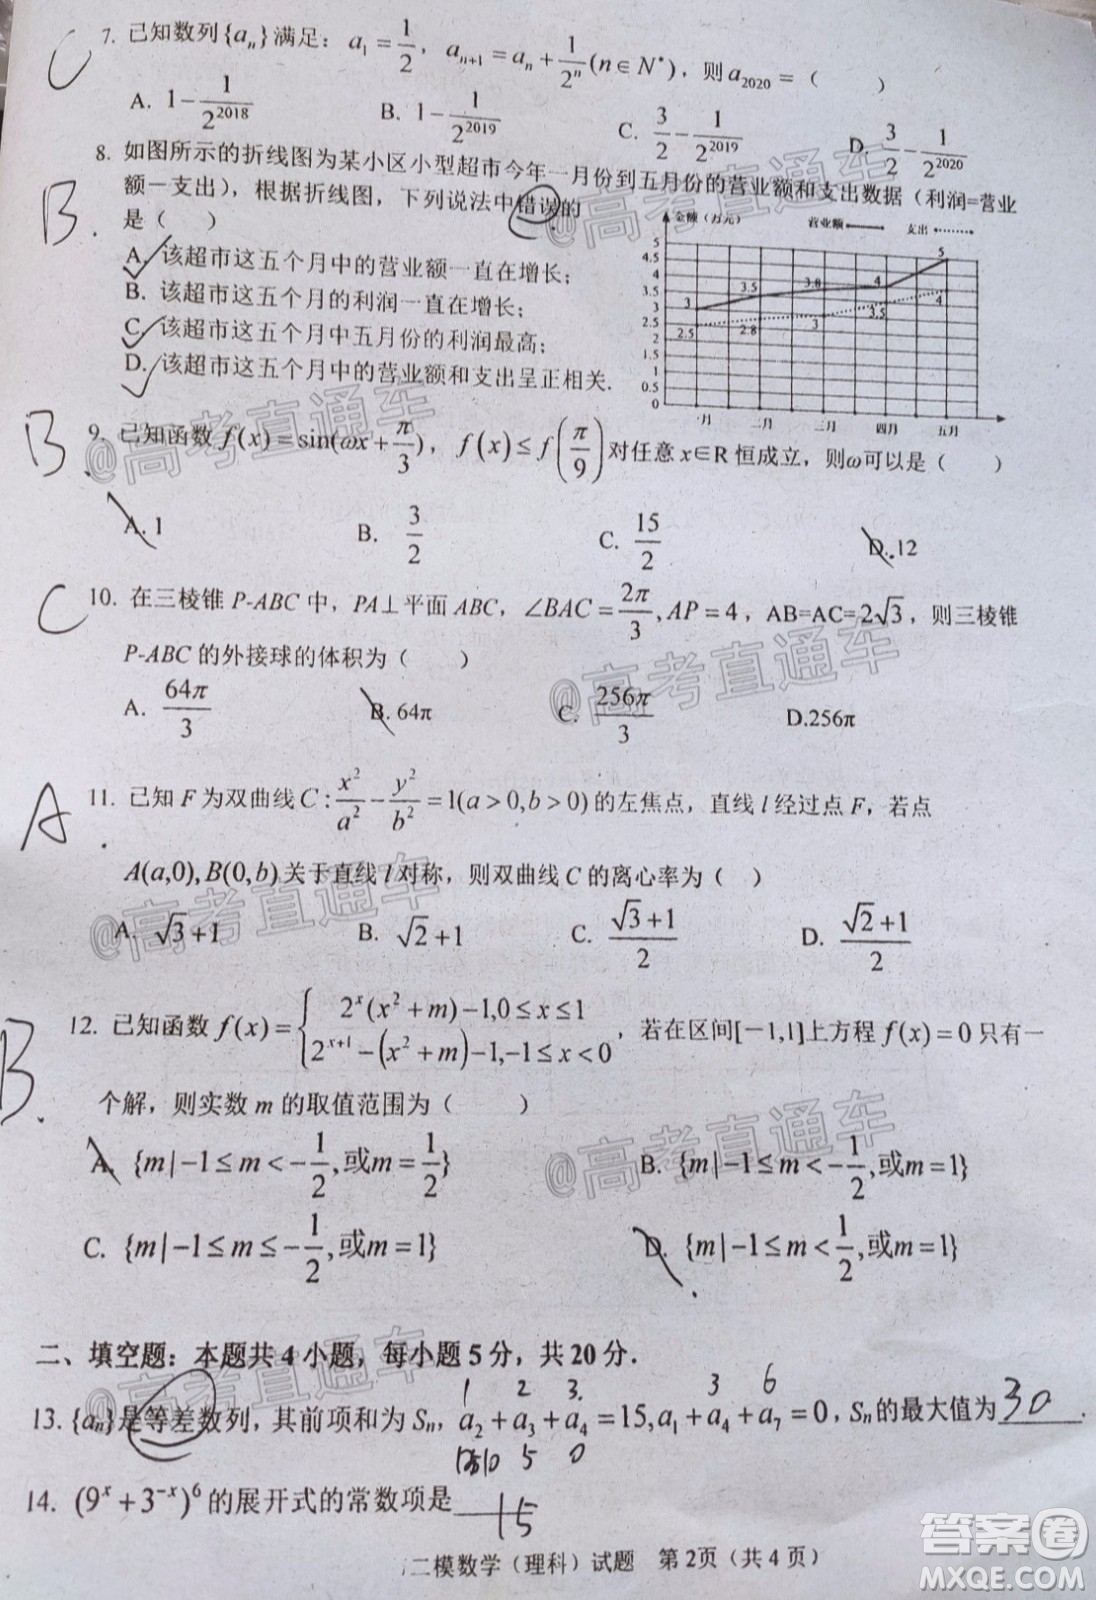 C 7. 已知数列{aₙ}满足：a₁=1/2，aₙ₊₁=aₙ+1/2ⁿ(n∈N*)，则a₂₀₂₀=（ ）
A. 1-1/2²⁰¹⁸ B. 1-1/2²⁰¹⁹ C. 3/2-1/2²⁰¹⁹ D. 3/2-1/2²⁰²⁰
8. 如图所示的折线图为某小区小型超市今年一月份到五月份的营业额和支出数据（利润=营业
B. 额－支出），根据折线图，下列说法中错误的
是（ ）
A. 该超市这五个月中的营业额一直在增长；
B. 该超市这五个月的利润一直在增长；
C. 该超市这五个月中五月份的利润最高；
D. 该超市这五个月中的营业额和支出呈正相关.
金额（万元） 营业额 支出
5
4.5
4
3.5
3
2.5
2
1.5
1
0.5
0
3 3.5 3.8 4 5
2.5 2.8 3 3.5 4
月 二月 三月 四月 五月
B. 9. 已知函数f(x)=sin(ωx+π/3)，f(x)≤f(π/9)对任意x∈R恒成立，则ω可以是（ ）
A. 1 B. 3/2 C. 15/2 D. 12
C 10. 在三棱锥P-ABC中，PA⊥平面ABC，∠BAC=2π/3,AP=4，AB=AC=2√3，则三棱锥
P-ABC的外接球的体积为（ ）
A. 64π/3 B. 64π C. 256π/3 D.256π
A. 11. 已知F为双曲线C:x²/a²-y²/b²=1(a>0,b>0)的左焦点，直线l经过点F，若点
A(a,0),B(0,b)关于直线l对称，则双曲线C的离心率为（ ）
A. √3+1 B. √2+1 C. (√3+1)/2 D. (√2+1)/2
B. 12. 已知函数f(x)={2ˣ(x²+m)-1,0≤x≤1
2ˣ⁺¹-(x²+m)-1,-1≤x<0，若在区间[-1,1]上方程f(x)=0只有一
个解，则实数m的取值范围为（ ）
A. {m|-1≤m<-1/2,或m=1/2} B. {m|-1≤m<-1/2,或m=1}
C. {m|-1≤m≤-1/2,或m=1} D. {m|-1≤m<1/2,或m=1}
二、填空题：本题共4小题，每小题5分，共20分.
1 2 3. 3 6
13. {aₙ}是等差数列，其前项和为Sₙ，a₂+a₃+a₄=15,a₁+a₄+a₇=0，Sₙ的最大值为30.
10 5 0
14. (9ˣ+3⁻ˣ)⁶的展开式的常数项是15
二模数学（理科）试题 第2页（共4页）
@高考直通车
@高考直通车
@高考直通车
@高考直通车
@高考直通车
@高考直通车
答案圈
MXQE.COM